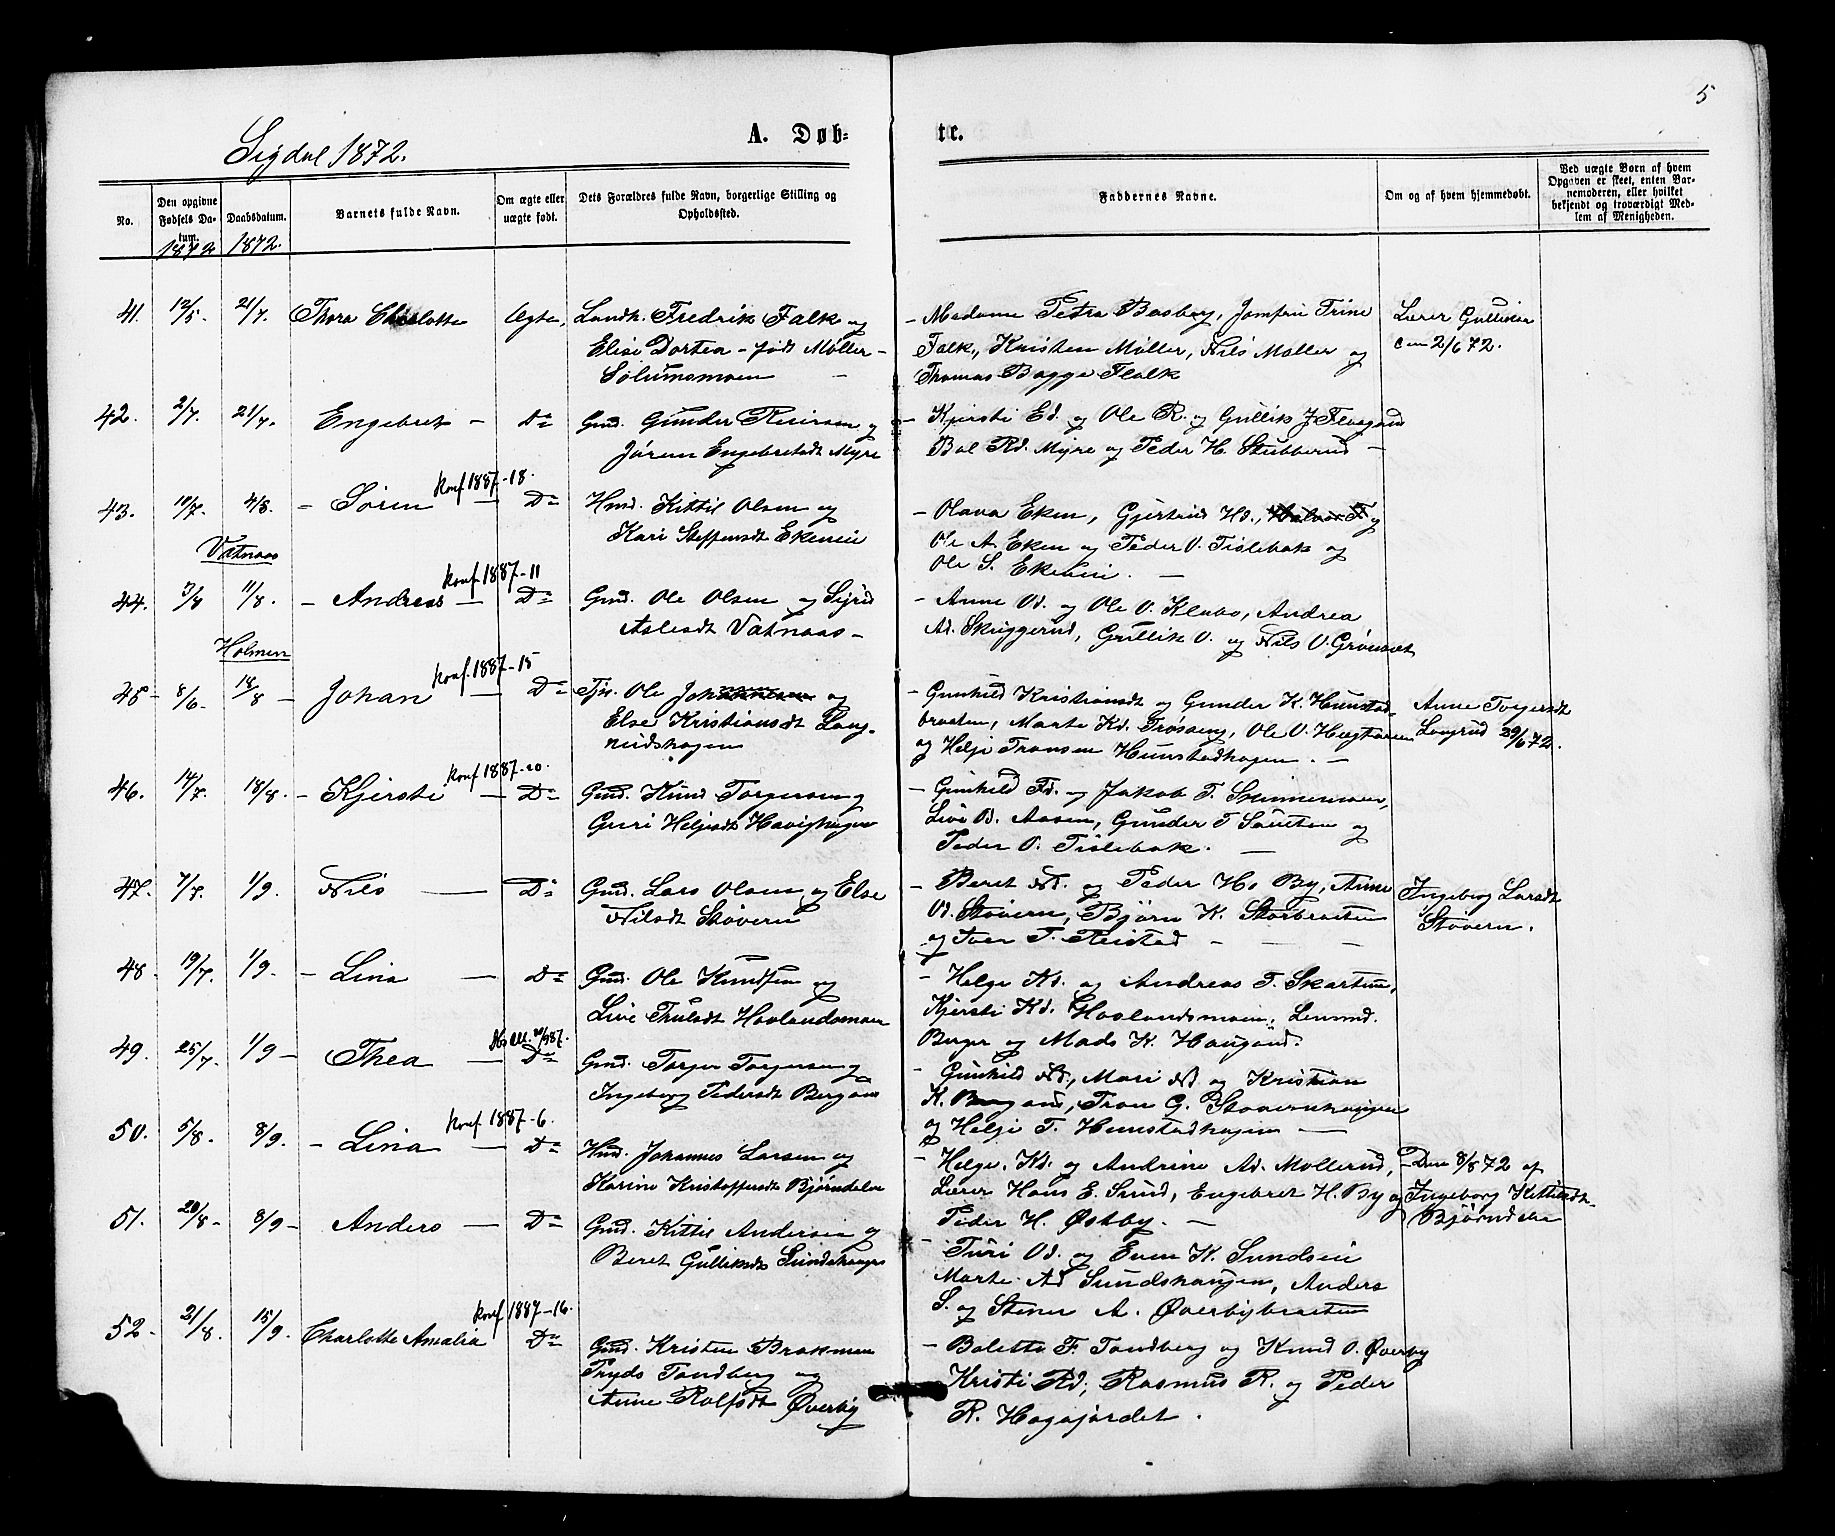 5
Sigdal 1872.
A. Døb-
te.
No.
Den opgivne Fødsels Datum.
1872
Daabsdatum.
1872.
Barnets fulde Navn.
Om ægte eller uægte født.
Dets Forældres fulde Navn, borgerlige Stilling og Opholdssted.
Faddernes Navne.
Om og af hvem hjemmedøbt.
Ved uægte Børn af hvem Opgaven er skeet, enten Barnemoderen, eller hvilket bekjendt og troværdigt Medlem af Menigheden.
41. 12/5. 21/7. Thora Charlotte Ægte, Landh. Fredrik Falk og
Elise Dortea - født Møller -
Solumsmoen -
- Madame Petra Basberg, Jomfru Trine
Falk, Kristen Møller, Nils Møller og
Thomas Bagge Falk
Lærer Gulliksen
2/6 72.
42. 2/7. 21/7. Engebret - Do Gmd. Gunder Reiersen og
Jøren Engebretsdt Myre
- Kjersti Ed. og Ole R. og Gullik J.
Bol Rd. Myre og Peder H. Stubberud -
konf 1887-18.
43. 10/7. 4/8. - Søren - Do Hmd. Kittil Olsen og
Kari Steffensdt Ekeneie
- Olava Eken, Gjertrud Hd., og
Ole A. Eken og Peder O. Tislebak og
Ole S. Ekeneie. -
Vatnaas
konf 1887-11
44. 3/8 11/8. - Andreas - Do Gmd. Ole Olsen og Sigrid
Aslesdt Vatnaas -
- Anne Od. og Ole O. Klabo, Andrea
Ad. Skuggerud, Gullik O. og Nils O. Grønsæt
Holmen
konf 1887-15
45 - 8/6. 18/8 - Johan - Do Tjn. Ole og
Else Kristiansdt Lang-
rudshagen
- Gunhild Kristiansdt og Gunder K. Hunstad-
braaten, Marte Kd. Frøseng, Ole O.
og Helje Transen Hunstadhagen. -
Anne Torgersdt
Langrud 29/6 72.
konf 1887-20.
46. 14/7. 18/8. - Kjersti - Do Gmd. Knud Torgersen og
Guri Heljesdt
- Gunhild Fd. og Jakob T.
Live O. Aasen, Gunder T. og
Peder O. Tislebak. -
47. 7/7. 1/9. Nils - Do Gmd. Lars Olsen og Else
Nilsdt Støvern
- Beret Nd. og Peder H. By, Anne
Od. Støvern, Bjørn K. Storbraaten
og Iver T. Reistad - - -
Ingeborg Larsdt
Støvern.
48 - 19/7. 1/9. - Lina - Do Gmd. Ole Knudsen og
Live Thulsdt Hovlandsmoen
- Helge Kd. og Andreas T. Skartum,
Kjersti Kd. Hovlandsmoen,
Berger og Mads K. Haugand.
49. 25/7. 1/9 - Thea - Do Gmd. Torger Torgersen og
Ingeborg Pedersdt Bergan
- Gunhild Nd., Mari Nd og Kristian
K. Bergan, Tron G. Støvernhaugen
og Helje T. Hunstadhagen -
konf 1887-6.
50. 5/8. 8/9. - Lina - Do Hmd. Johannes Larsen og
Karine Kristoffersdt Bjørndalen
- Helge Kd. og Andrine Ad. Møllerud,
Lærer Hans E. Sund, Engebret H. By og
Peder H. Østby. -
Den 8/8 72 af
Ingeborg Kittilsdt
Bjørndalen
51. 20/8 - 8/9 - Anders - Do Gmd. Kittil Andersen og
Beret Gulliksdt Sundshaugen
- Turi Od. og Even K. Sundseie
Marte Ad Sundshaugen, Anders
S. og Stener A. Øverbybraaten
konf 1887-16.
52 - 21/8. 15/9. Charlotte Amalia Do Gmd. Kristen Brakman
Tandberg og
Anne Rolfsdt Øverby
- Bolette F. Tandberg og Knud O. Øverby
Kristi Rd, Rasmus R. og Peder
R. Hagajordet.